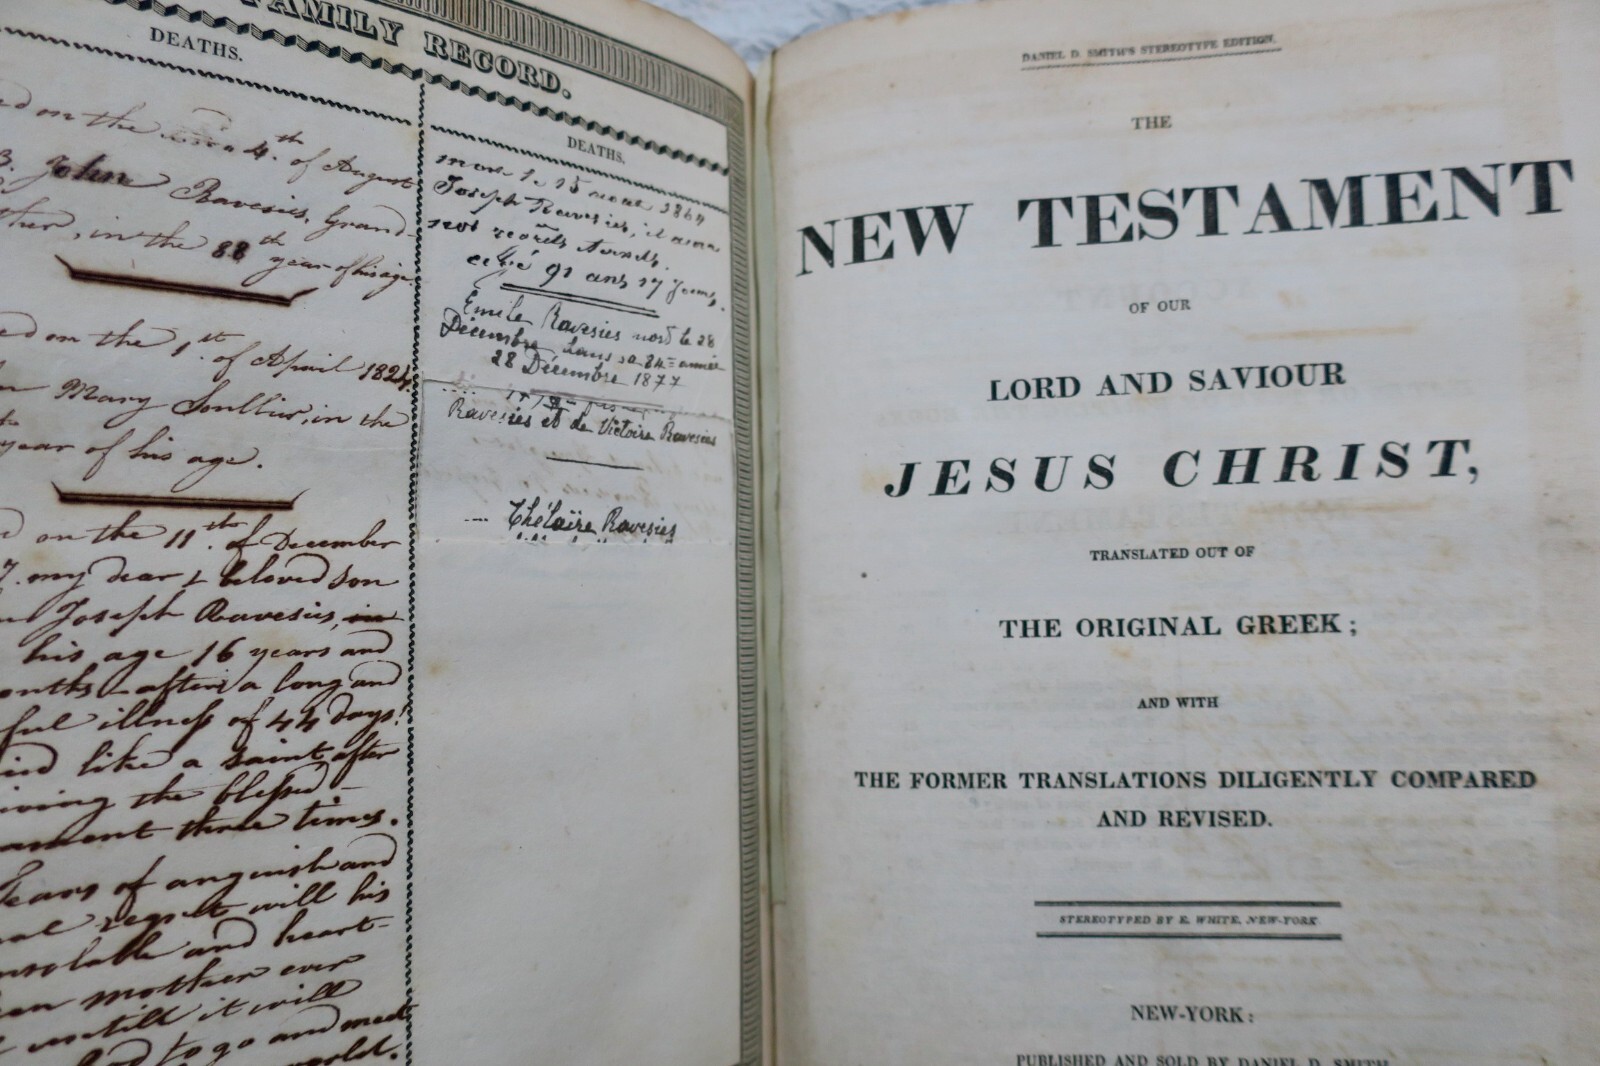 FAMILY RECORD.
DEATHS.
on the 4th of August
John Ravesies, Grand-
in the 88th year of his age
on the 1st of April 1824
Mary Soullier, in the
year of his age.
on the 11th of December
7. my dear & beloved son
Joseph Ravesies, in
his age 16 years and
after a long and
ful illness of 44 days!
like a saint after
the blessed
ament three times.
Tears of anguish and
regret will his
and heart-
mother ever
until it will
to go and meet
world.
DEATHS.
1864
Joseph Ravesies,
nos regrets
91 ans 17 Jours,
Emile Ravesies mort le 28
Décembre, dans sa 84= année
28 Décembre 1877
Ravesies et de Victoire Ravesies
Thélaïre Ravesies
DANIEL D. SMITH'S STEREOTYPE EDITION.
THE
NEW TESTAMENT
OF OUR
LORD AND SAVIOUR
JESUS CHRIST,
TRANSLATED OUT OF
THE ORIGINAL GREEK;
AND WITH
THE FORMER TRANSLATIONS DILIGENTLY COMPARED
AND REVISED.
STEREOTYPED BY E. WHITE, NEW-YORK
NEW-YORK:
PUBLISHED AND SOLD BY DANIEL D. SMITH